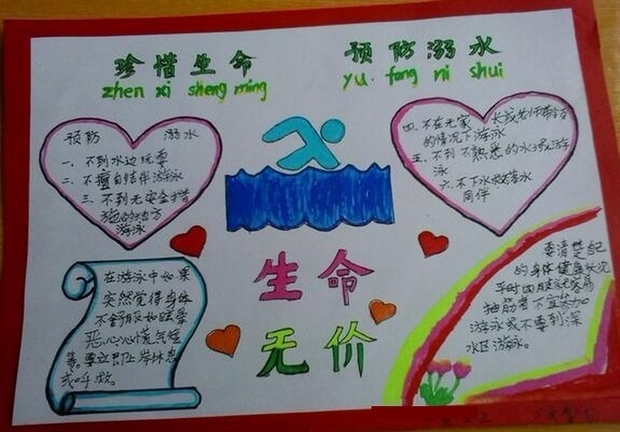 珍惜生命
zhen xi sheng ming
预防溺水
yu fang ni shui
预防 溺水
一、不到水边玩耍
二、不擅自结伴游泳
三、不到无安全措
施的地方
游泳
四、不在无家长或老师带领
的情况下游泳
五、不到不熟悉的水域游
泳
六、不下水救落水
同伴
生命
无价
在游泳中如果
突然觉得身体
不舒服如眩晕
恶心心慌气短
等。要立即上岸休息
或呼救。
要清楚自己
的身体健康状况
平时四肢就容易
抽筋者不宜参加
游泳或不要到深
水区游泳。